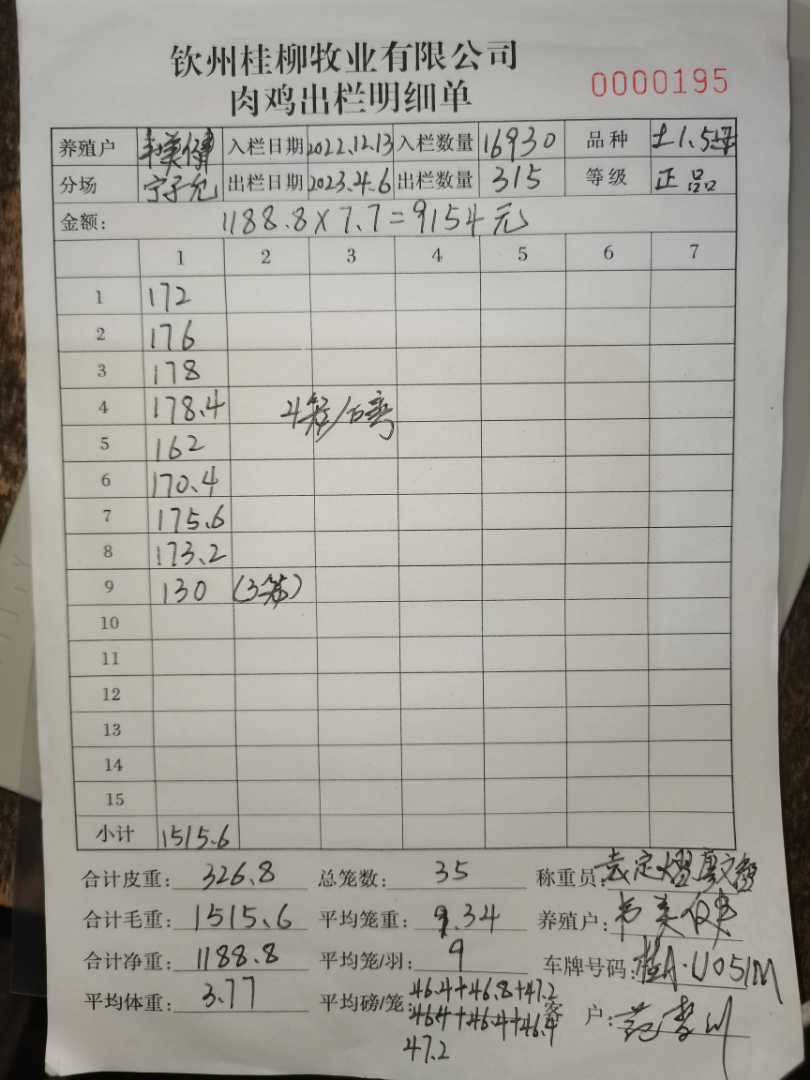 钦州桂柳牧业有限公司
肉鸡出栏明细单
0000195
养殖户 韦美健 入栏日期 2022.12.13 入栏数量 16930 品种 土1.5
分场 宁子允 出栏日期 2023.4.6 出栏数量 315 等级 正品
金额: 1188.8×7.7=9154元
1 2 3 4 5 6 7
1 172
2 176
3 178
4 178.4 4笼/
5 162
6 170.4
7 175.6
8 173.2
9 130 (3笼)
10
11
12
13
14
15
小计 1515.6
合计皮重: 326.8 总笼数: 35 称重员:
合计毛重: 1515.6 平均笼重: 9.34 养殖户: 韦美健
合计净重: 1188.8 平均笼/羽: 9 车牌号码: 桂A·U051M
平均体重: 3.77 平均磅/笼: 46.4+46.8+47.2 客户:
46.4+46.4+46.4
47.2